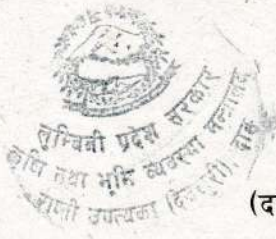 लुम्बिनी प्रदेश सरकार
कृषि तथा भूमि व्यवस्था मन्त्रालय
राप्ती उपत्यका (देउखुरी), दाङ
(द